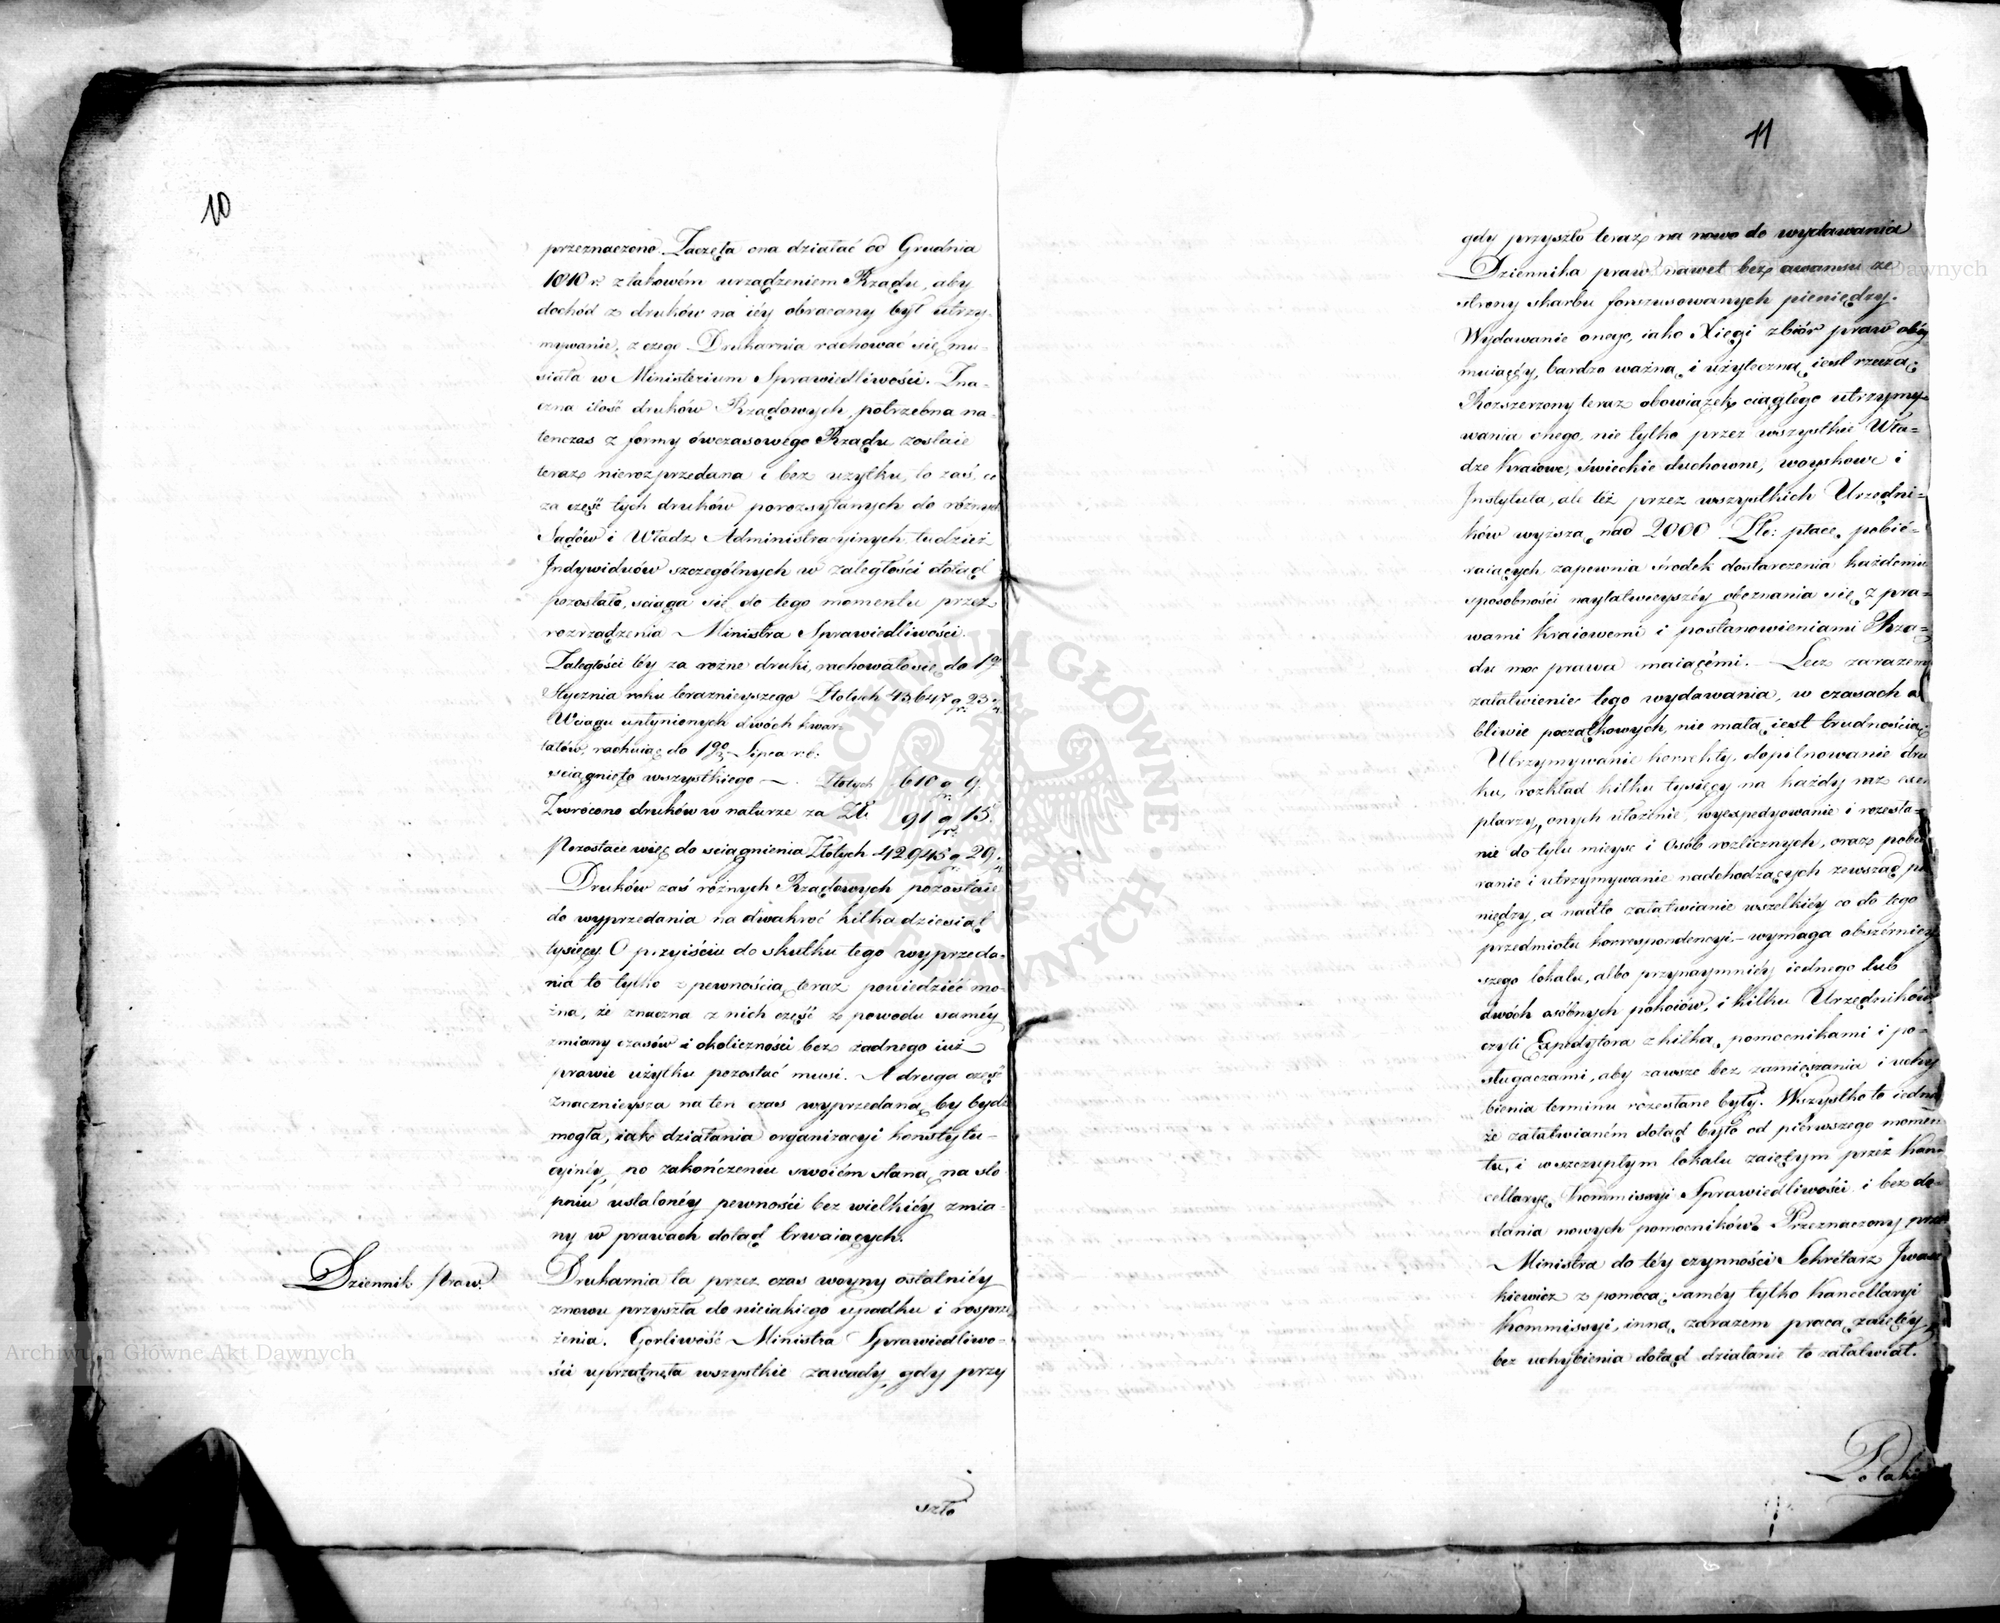 10
przeznaczono. Zaczęła ona działać od Grudnia
1810 r. z takowém urządzeniem Rządu, aby
dochód z druków na iéy obracany był utrzy-
mywanie, z czego Drukarnia rachować się mu-
siała w Ministerium Sprawiedliwości. Zna-
czna ilość druków Rządowych, potrzebna na-
tenczas z formy ówczasowego Rządu zostaie
teraz nierozprzedana i bez użytku, to zaś, co
za część tych druków porozsyłanych do różnych
Sądów i Władz Administracyinych tudzież
Indywiduów szczególnych w zaległości dotąd
pozostało, ściąga się do tego momentu przez
rozrządzenia Ministra Sprawiedliwości.
Zaległości téy za rożne druki, rachowało się do 1go
Stycznia roku teraznieyszego Złotych 43647 gr. 23
Wciągu upłynionych dwóch kwar-
tałów, rachuiąc do 1go Lipca r.b.
ściągnięto wszystkiego — Złotych 610 gr. 9
Zwrócono druków w naturze za Zł. 91 gr. 15.
Pozostaie więc do ściągnienia Złotych 42945 gr. 29.
Druków zaś różnych Rządowych pozostaie
do wyprzedania na dwakroć kilkadziesiąt
tysięcy. O przyiściu do skutku tego wyprzeda-
nia to tylko z pewnością teraz powiedzieć mo-
żna, że znaczna z nich część z powodu saméy
zmiany czasów i okoliczności bez żadnego iuż
prawie użytku pozostać musi. A druga część
znacznieysza na ten czas wyprzedaną by bydź
mogła, iak działania organizacyi konstytu-
cyinéy, po zakończeniu swoiém staną na sto
pniu ustalonéy pewności bez wielkiéy zmia-
ny w prawach dotąd trwaiących.
Dziennik Praw.
Drukarnia ta przez czas woyny ostatniéy
znowu przyszła do nieiakiego upadku i rosprzę
żenia. Gorliwość Ministra Sprawiedliwo-
ści uprzątnęła wszystkie zawady, gdy przy
szło
11
gdy przyszło teraz na nowo do wydawania
Dziennika praw nawet bez awansu ze
strony skarbu forszusowanych pieniędzy.
Wydawanie onego, iako Xięgi zbiór praw obéy
muiącéy, bardzo ważną i użyteczną iest rzeczą.
Rozszerzony teraz obowiązek ciągłego utrzymy-
wania onego, nie tylko przez wszystkie Wła-
dze Kraiowe, świeckie duchowne, woyskowe i
Instytuta, ale też przez wszystkich Urzędni-
ków wyższą nad 2000 Złt: płacę pobié-
raiących, zapewnia środek dostarczenia każdemu
sposobności naytatwieyszéy obeznania się z pra-
wami kraiowemi i postanowieniami Rzą-
du moc prawa maiącémi. — Lecz zarazem
załatwienie tego wydawania, w czasach o
bliwie początkowych, nie małą iest trudnością.
Utrzymywanie korrekty, dopilnowanie dru
ku, rozkład kilku tysięcy na każdy raz exem
plarzy, onych złożenie, wyexpedyowanie i rozesła-
nie do tylu mieysc i osób rozlicznych, oraz pobié
ranie i utrzymywanie nadchodzących zewsząd pie
niędzy, a nadto załatwianie wszelkiéy co do tego
przedmiotu korrespondencyi — wymaga obszérniey
szego lokalu, albo przynaymniéy iednego lub
dwóch osóbnych pokoiów, i kilku Urzędników
czyli Expedytora z kilką pomocnikami i po-
sługaczami, aby zawsze bez zamięszania i uchy
bienia terminu rozesłane były. Wszystko to iednak
że załatwianém dotąd było od piérwszego momen
tu, i w szczupłym lokalu zaiętym przez Kan-
cellaryę Kommissyi Sprawiedliwości i bez do-
dania nowych pomocników. Przeznaczony przez
Ministra do téy czynności Sekrétarz Iwasz
kiewicz z pomocą saméy tylko Kancellaryi
Kommissyi, inną zarazem pracą zaiętéy,
bez uchybienia dotąd działanie to załatwiał.
Po takim
Archiwum Główne Akt Dawnych
ARCHIWUM GŁÓWNE
DAWNYCH